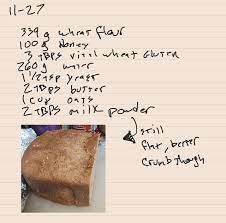 11-27
339 g wheat flour
100 g Honey
3 TBPS vital wheat Gluten
260 g water
1 1/2 tsp yeast
2 TBPS butter
1 cup oats
2 TBPS milk powder
still
flat, better
crumb though